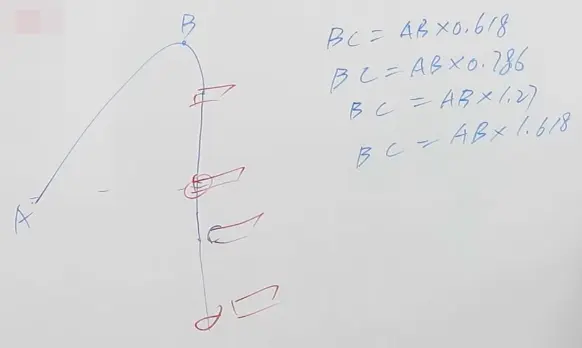 B
BC = AB×0.618
BC = AB×0.786
BC = AB×1.27
BC = AB×1.618
A
C